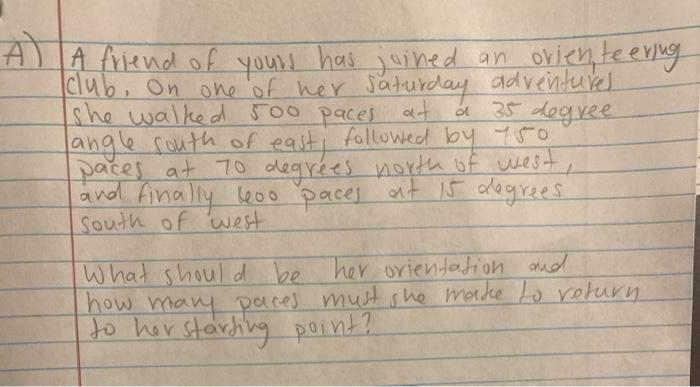 A) A friend of yours has joined an orienteering
club. On one of her Saturday adventures
she walked 500 paces at a 35 degree
angle south of east, followed by 750
paces at 70 degrees north of west,
and finally 600 paces at 15 degrees
south of west
What should be her orientation and
how many paces must she make to return
to her starting point?